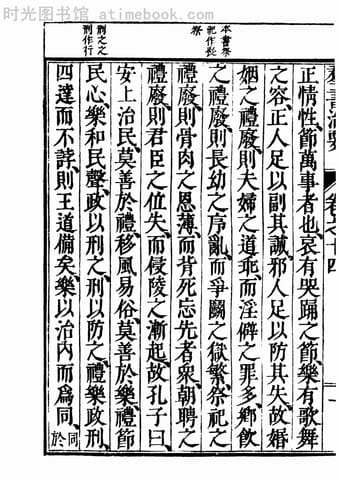 时光图书馆 atimebook.com
本書祭
祀作喪
祭
刑之之
刑作行
羣書治要 卷之十四 一
正情性、節萬事者也、哀有哭踊之節、樂有歌舞
之容、正人足以副其誠、邪人足以防其失、故婚
姻之禮廢、則夫婦之道乖、而淫僻之罪多、鄉飲
之禮廢、則長幼之序亂、而爭鬪之獄繁、祭祀之
禮廢、則骨肉之恩薄、而背死忘先者衆、朝聘之
禮廢、則君臣之位失、而侵陵之漸起、故孔子曰、
安上治民、莫善於禮、移風易俗、莫善於樂、禮節
民心、樂和民聲、政以刑之、刑以防之、禮樂政刑、
四達而不誖、則王道備矣、樂以治内而爲同、同於